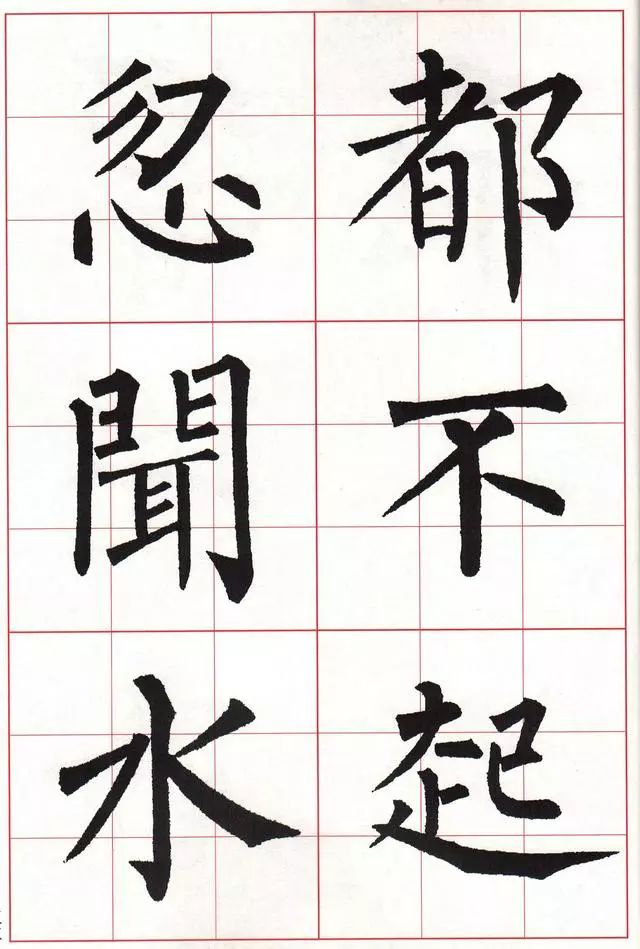 都不起
忽聞水